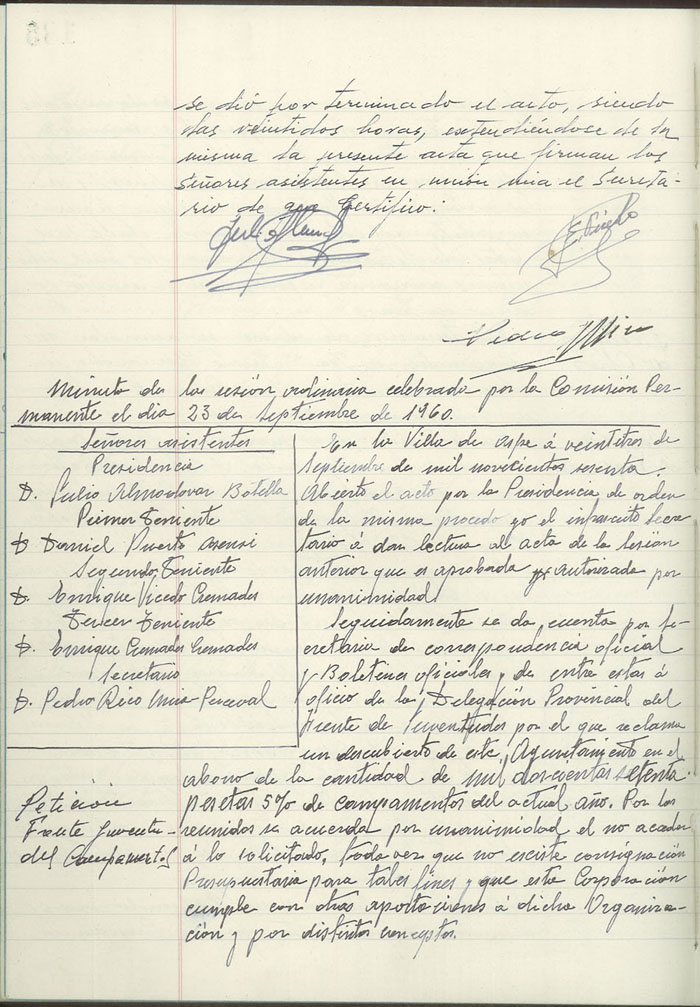 se dió por terminado el acto, siendo
las veintidos horas, extendiéndose de la
misma la presente acta que firman los
Señores asistentes en unión mia el Secreta-
rio de que Certifico:
Pedro
Minuta de la sesión ordinaria celebrada por la Comisión Per-
manente el dia 23 de Septiembre de 1960.
Señores asistentes
Presidencia
D. Julio Almodovar Botella
Primer Teniente
D. Daniel Puerto Asensi
Segundo Teniente
D. Enrique Vicedo Cremades
Tercer Teniente
D. Enrique Cremades Cremades
Secretario
D. Pedro Rico Mira-Perceval
En la Villa de Aspe á veintitres de
Septiembre de mil novecientos sesenta.
Abierto el acto por la Presidencia de orden
de la misma procedo yo el infrascrito Secre
tario á dar lectura al acta de la sesión
anterior que es aprobada y autorizada por
unanimidad.
Seguidamente se da cuenta por Se-
cretaria de correspondencia oficial
y Boletines oficiales, y de entre estas á
oficio de la Delegación Provincial del
Frente de Juventudes por el que reclama
un descubierto de este Ayuntamiento en el
abono de la cantidad de mil doscientas setenta
pesetas 5% de campamentos del actual año. Por los
reunidos se acuerda por unanimidad el no acceder
á lo solicitado, toda vez que no esciste consignación
Presupuestaria para tales fines y que esta Corporación
cumple con otras aportaciones á dicha Organiza-
ción y por distintos conceptos.
Petición
Frente Juventu-
des Campament.